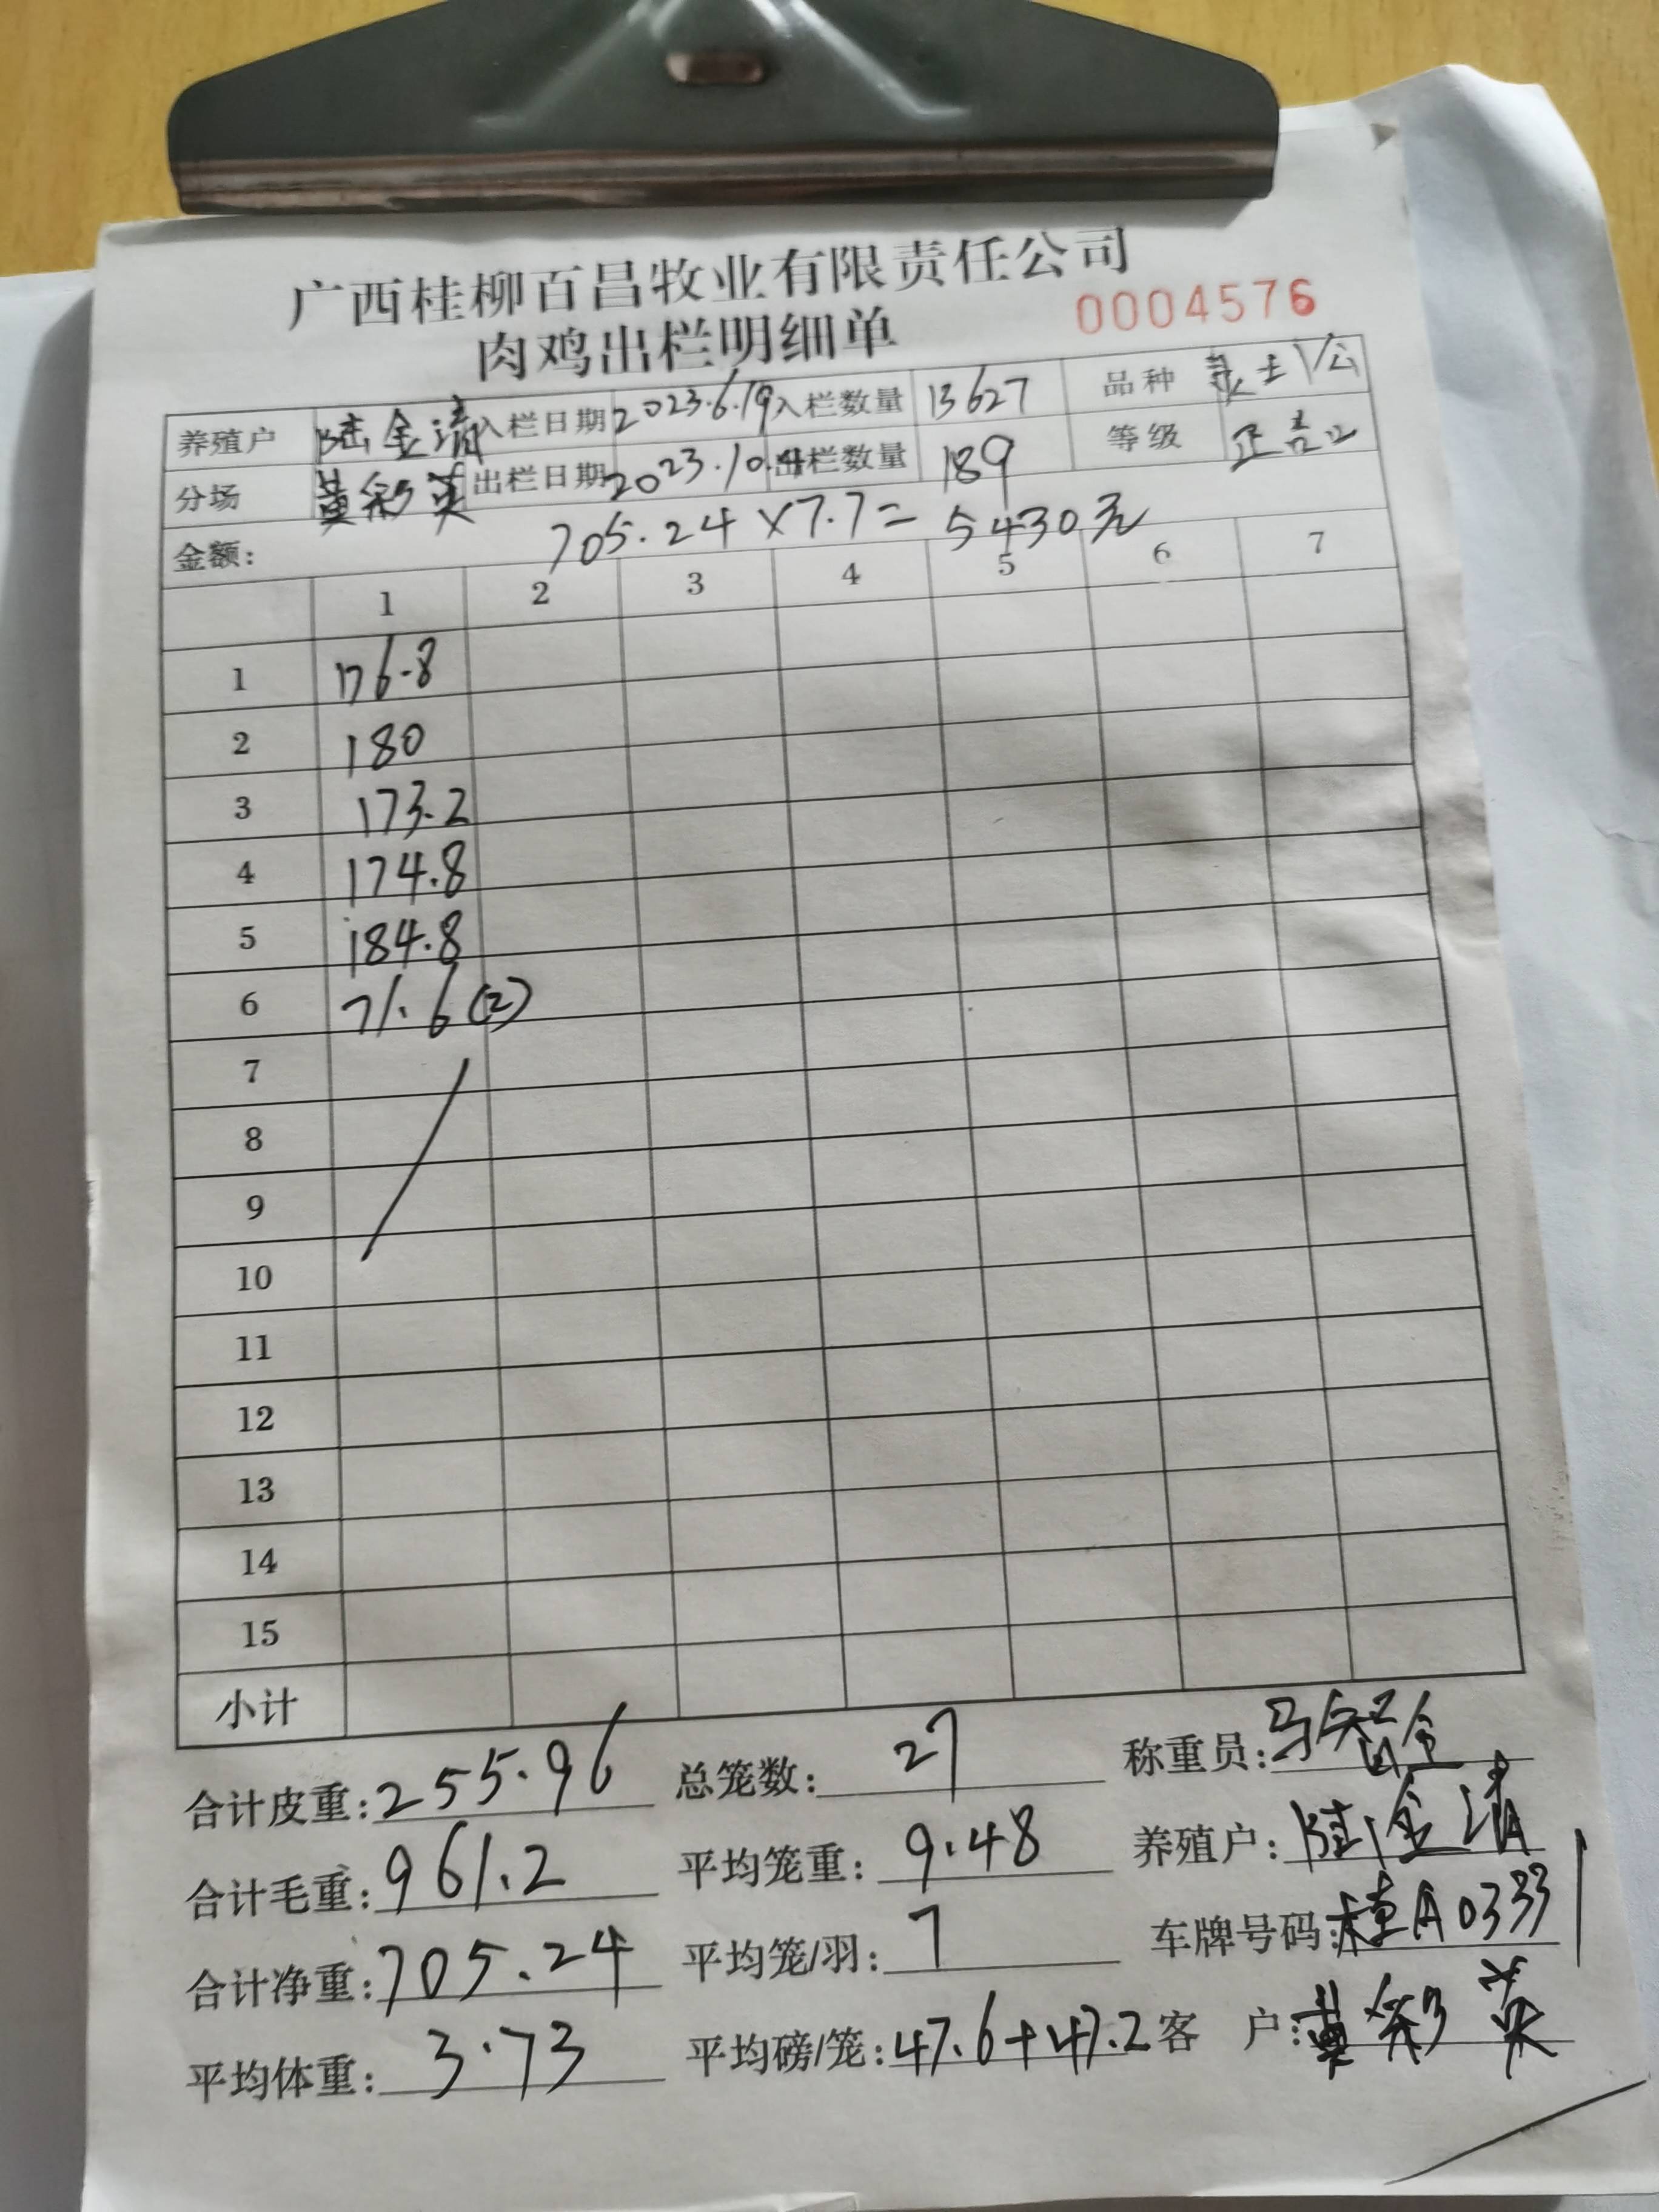 广西桂柳百昌牧业有限责任公司
肉鸡出栏明细单 0004576
养殖户 陆金清 入栏日期 2023.6.19 入栏数量 13627 品种 灵土1/公
分场 黄彩英 出栏日期 2023.10.4 出栏数量 189 等级 正
金额: 705.24×7.7=5430元
1 2 3 4 5 6 7
1 176.8
2 180
3 173.2
4 174.8
5 184.8
6 71.6(2)
7
8
9
10
11
12
13
14
15
小计
合计皮重: 255.96 总笼数: 27 称重员: 马智全
合计毛重: 961.2 平均笼重: 9.48 养殖户: 陆金清
合计净重: 705.24 平均笼/羽: 7 车牌号码: 桂A03331
平均体重: 3.73 平均磅/笼: 47.6+47.2 客 户: 黄彩英